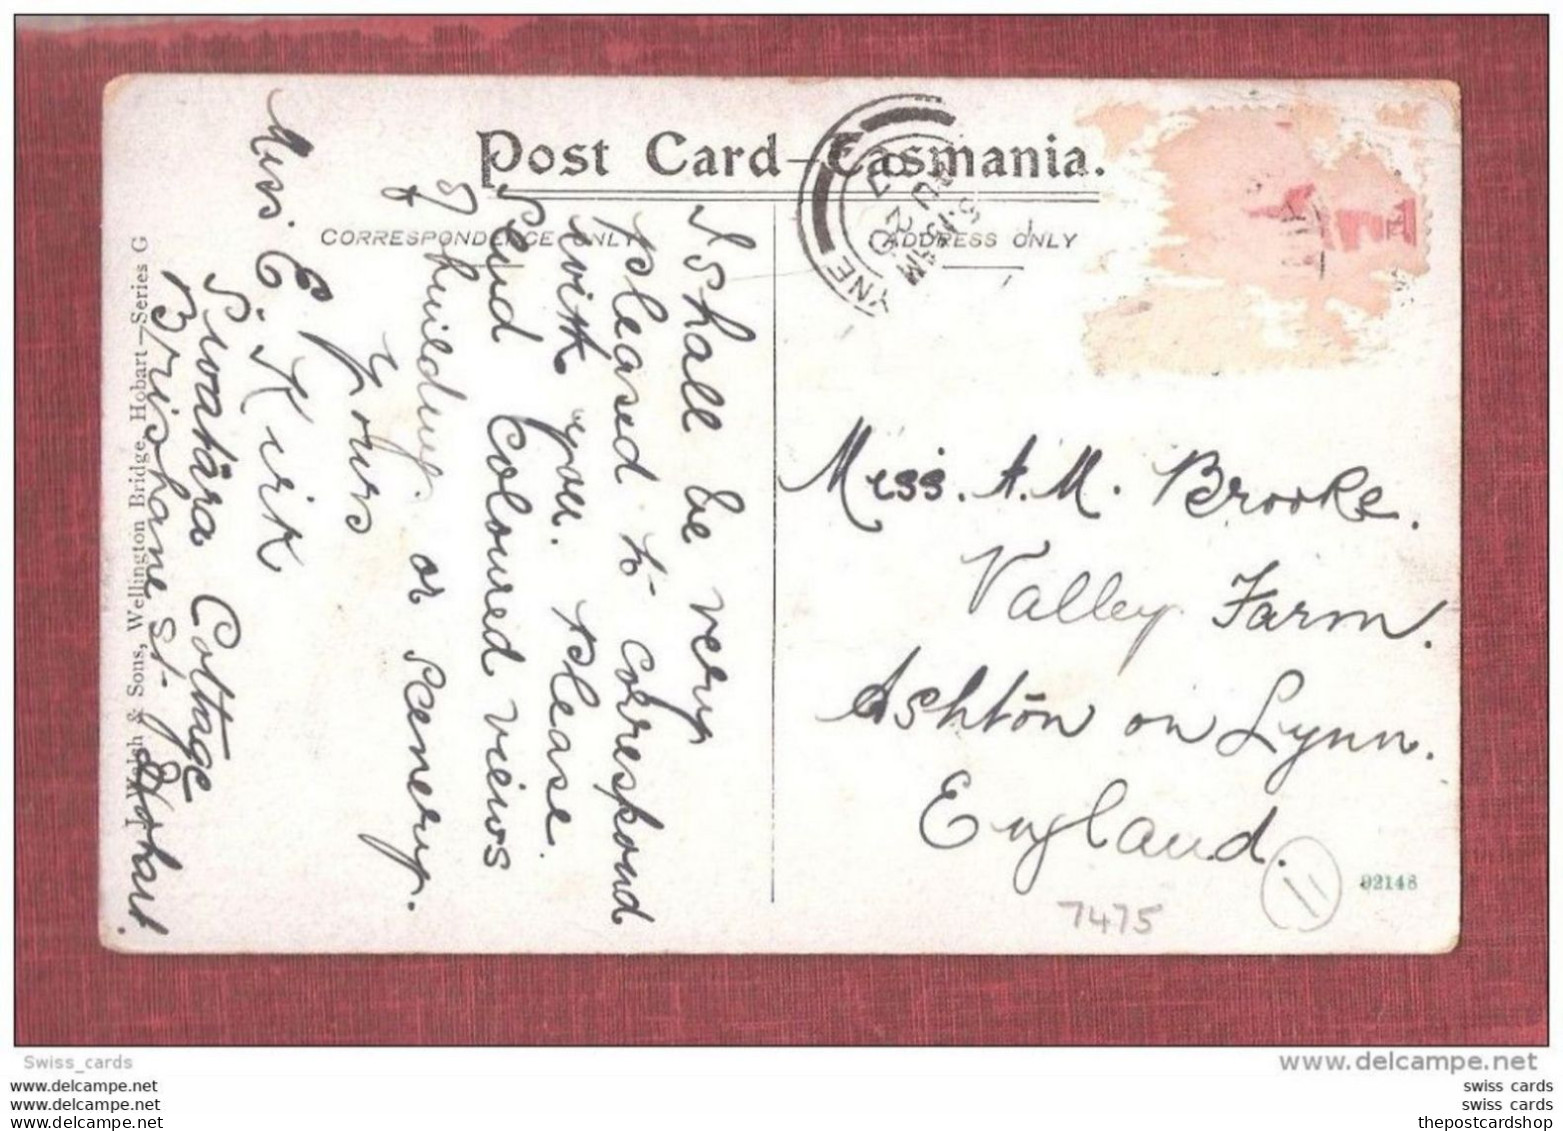 Post Card—Tasmania.
CORRESPONDENCE ONLY
ADDRESS ONLY
I shall be very
pleased to correspond
with you. please
send Coloured views
or scenery.
Yours
Miss. E. Kirk
Cottage
Brisbane St. Hobart.
& Sons, Wellington Bridge, Hobart—Series G
YNE
Miss. A. M. Brooke.
Valley Farm.
Ashton on Lynn.
England.
11
7475
92148
Swiss_cards
www.delcampe.net
www.delcampe.net
www.delcampe.net
www.delcampe.net
swiss cards
swiss cards
thepostcardshop